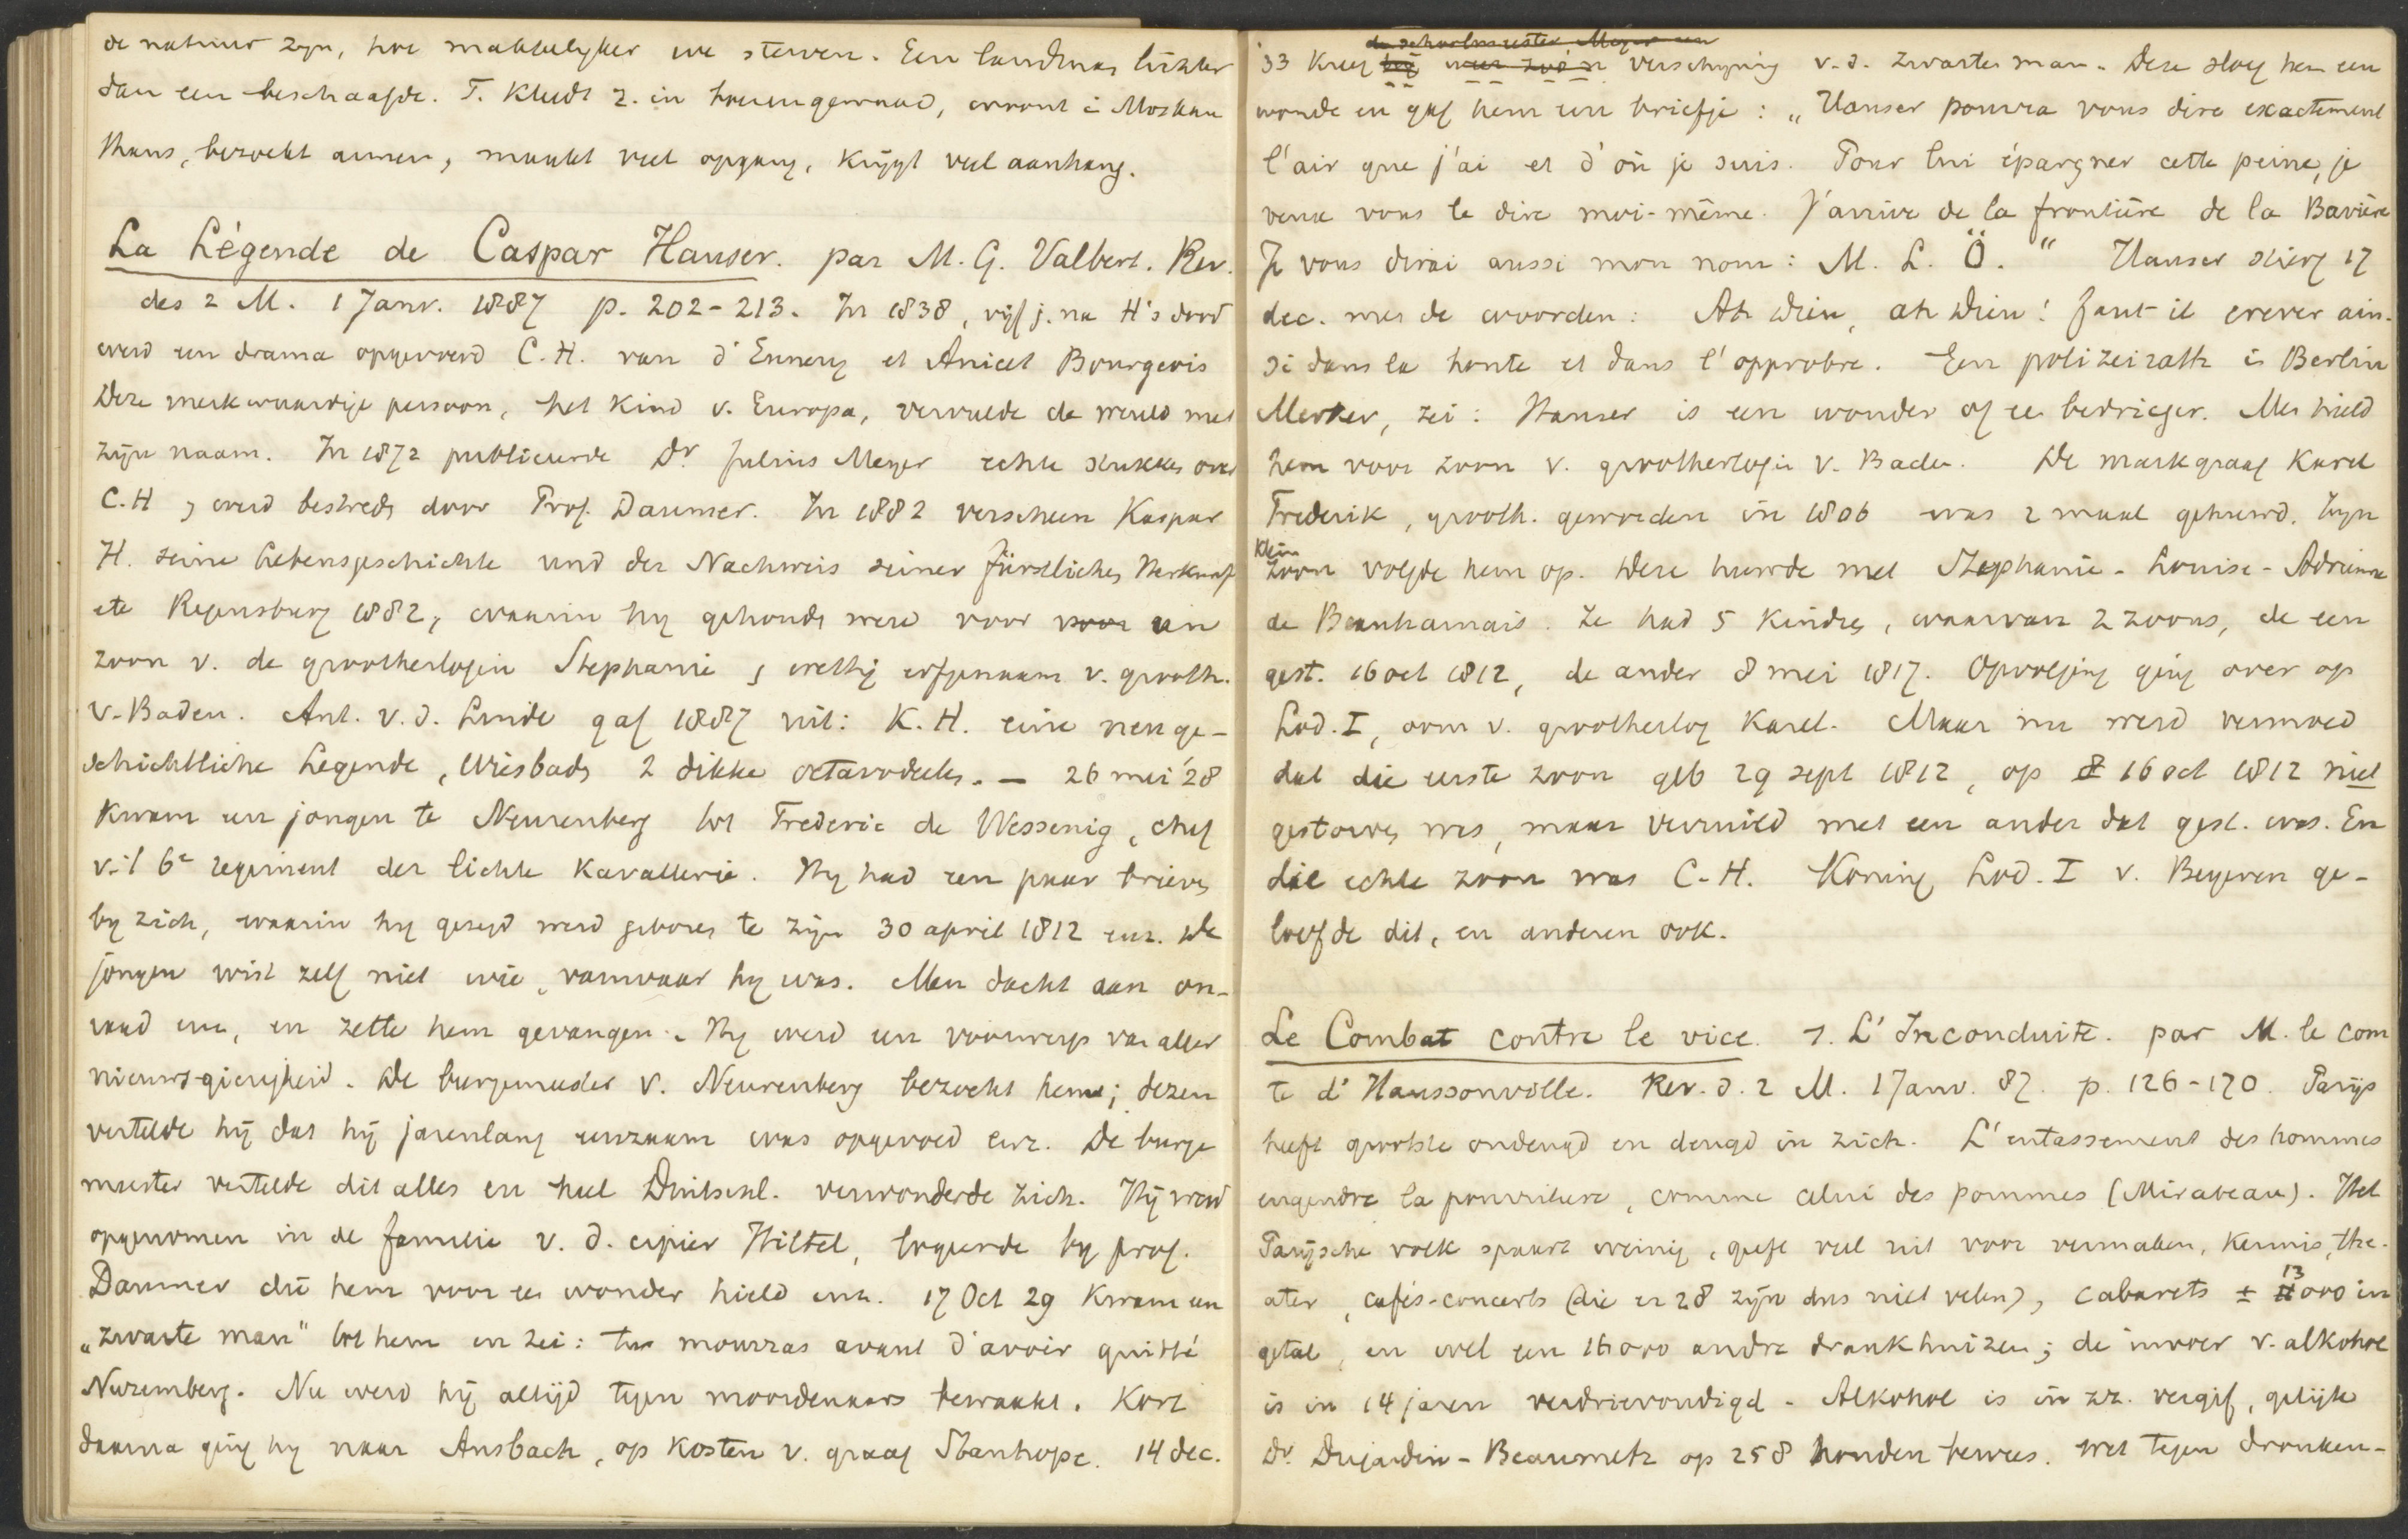 de natuur zyn, hoe makkelyker we sterven. Een landman lichter
dan een beschaafde. T. kleedt z. in boerengewaad, woont i Moskau
thans, bezoekt armen, maakt veel opgang, krijgt veel aanhang.
La Légende de Caspar Hauser. par M. G. Valbert. Rev.
des 2 M. 1 Janv. 1887 p. 202-213. In 1838, vijf j. na H's dood
werd een drama opgevoerd C.H. van d'Ennery et Anicet Bourgeois
Deze merkwaardige persoon, het kind v. Europa, vervulde de wereld met
zijn naam. In 1872 publiceerde Dr Julius Meyer echte stukken over
C.H, werd bestreden door Prof. Daumer. In 1882 verscheen Kaspar
H. seine Lebensgeschichte und der Nachweis seiner fürstlichen Herkunft
etc Regensburg 1882, waarin hy gehouden werd voor voor een
zoon v. de groothertogin Stephanie, wettig erfgenaam v. grooth.
v. Baden. Ant. v. d. Linde gaf 1887 uit: K. H. eine neuge-
schichtliche Legende, Wiesbaden 2 dikke octavodeelen. — 26 mei '28
kwam een jongen te Neurenberg tot Frederic de Wessenig, chef
v. 't 6e regiment der lichte Kavallerie. Hy had een paar brieven
by zich, waarin hy gezegd werd geboren te zijn 30 april 1812 enz. De
jongen wist zelf niet wie, vanwaar hy was. Men dacht aan on-
raad enz, en zette hem gevangen. Hy werd een voorwerp van aller
nieuws-gierigheid. De burgemeester v. Neurenberg bezocht hem; dezen
vertelde hij dat hij jarenlang eenzaam was opgevoed enz. De burge
meester vertelde dit alles en heel Duitschl. verwonderde zich. Hij werd
opgenomen in de familie v. d. cipier Hiltel, logeerde by prof.
Daumer die hem voor een wonder hield enz. 17 Oct 29 kwam een
„zwarte man" tot hem en zei: tu mourras avant d'avoir quitté
Nuremberg. Nu werd hij altijd tegen moordenaars bewaakt. Kort
daarna ging hy naar Ansbach, op kosten v. graaf Stanhope. 14 dec.
de schoolmeester Meyer een
33 kreeg hij weer zoo'n verschyning v. d. zwarte man. Deze sloeg hem een
wonde en gaf hem een briefje: „Hauser pourra vous dire exactement
l'air que j'ai et d'où je suis. Pour lui épargner cette peine, je
veux vous le dire moi-même. J'arrive de la frontière de la Bavière
Je vous dirai aussi mon nom: M. L. Ö." Hauser stierf 17
dec. met de woorden: Ah Dieu, ah Dieu! faut-il crever ain-
si dans la honte et dans l'opprobre. Een polizeirath in Berlin
Merker, zei: Hauser is een wonder of een bedrieger. Men hield
hem voor zoon v. groothertogin v. Baden. De markgraaf Karel
Frederik, grooth. geworden in 1806 was 2 maal gehuwd. Zyn
klein
zoon volgde hem op. Deze huwde met Stephanie-Louise-Adrienne
de Beauharnais. Ze had 5 kinderen, waarvan 2 zoons, de een
gest. 16 oct 1812, de ander 8 mei 1817. Opvolging ging over op
Lod. I, oom v. groothertog Karel. Maar nu werd vermoed
dat die eerste zoon geb 29 sept 1812, op 16 oct 1812 niet
gestorven was, maar verruild met een ander dat gest. was. En
die echte zoon was C-H. Koning Lod. I v. Beyeren ge-
loofde dit, en anderen ook.
Le Combat contre le vice. 1. L'Inconduite. par M. le com
te d'Haussonville. Rev. d. 2 M. 1 Janv. 87. p. 126-170. Parijs
heeft grootste ondeugd en deugd in zich. L'entassement des hommes
engendre la pourriture, comme celui des pommes (Mirabeau). Het
Parijsche volk spaart weinig, geeft veel uit voor vermaken, kermis, the-
ater, cafés-concerts (die er 28 zijn dus niet velen), cabarets ± 13000 in
getal, en wel een 16000 andre drankhuizen; de invoer v. alkohol
is in 14 jaren verdrievoudigd. Alkohol is in zr. vergif, gelijk
Dr. Dujardin-Beaumetz op 258 honden bewees. Wet tegen dronken-